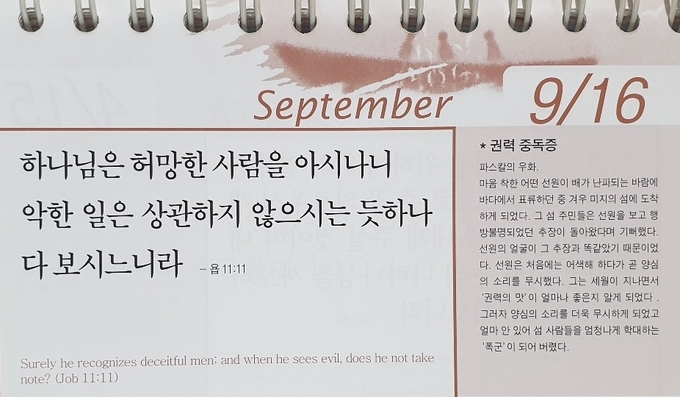 September
9/16
하나님은 허망한 사람을 아시나니
악한 일은 상관하지 않으시는 듯하나
다 보시느니라 – 욥 11:11
Surely he recognizes deceitful men; and when he sees evil, does he not take
note? (Job 11:11)
* 권력 중독증
파스칼의 우화.
마음 착한 어떤 선원이 배가 난파되는 바람에
바다에서 표류하던 중 겨우 미지의 섬에 도착
하게 되었다. 그 섬 주민들은 선원을 보고 행
방불명되었던 추장이 돌아왔다며 기뻐했다.
선원의 얼굴이 그 추장과 똑같았기 때문이었
다. 선원은 처음에는 어색해 하다가 곧 양심
의 소리를 무시했다. 그는 세월이 지나면서
'권력의 맛'이 얼마나 좋은지 알게 되었다.
그러자 양심의 소리를 더욱 무시하게 되었고
얼마 안 있어 섬 사람들을 엄청나게 학대하는
'폭군'이 되어 버렸다.